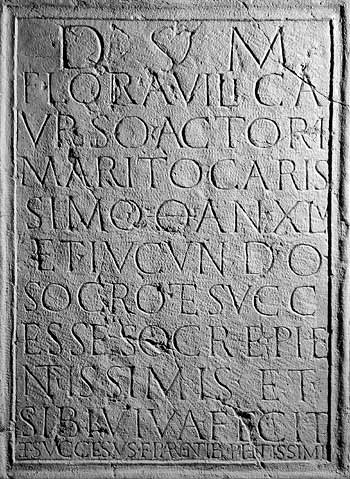 D M
FLORA VILICA
VRSO ACTORI
MARITO CARIS
SIMO Θ AN XLV
ET IVCVNDO
SOCRO ET SVCC
ESSE SOCRE PIE
NTISSIMIS ET
SIBI VIVA FECIT
T SVCCESVS F PARENTIB PIENTISSIMI